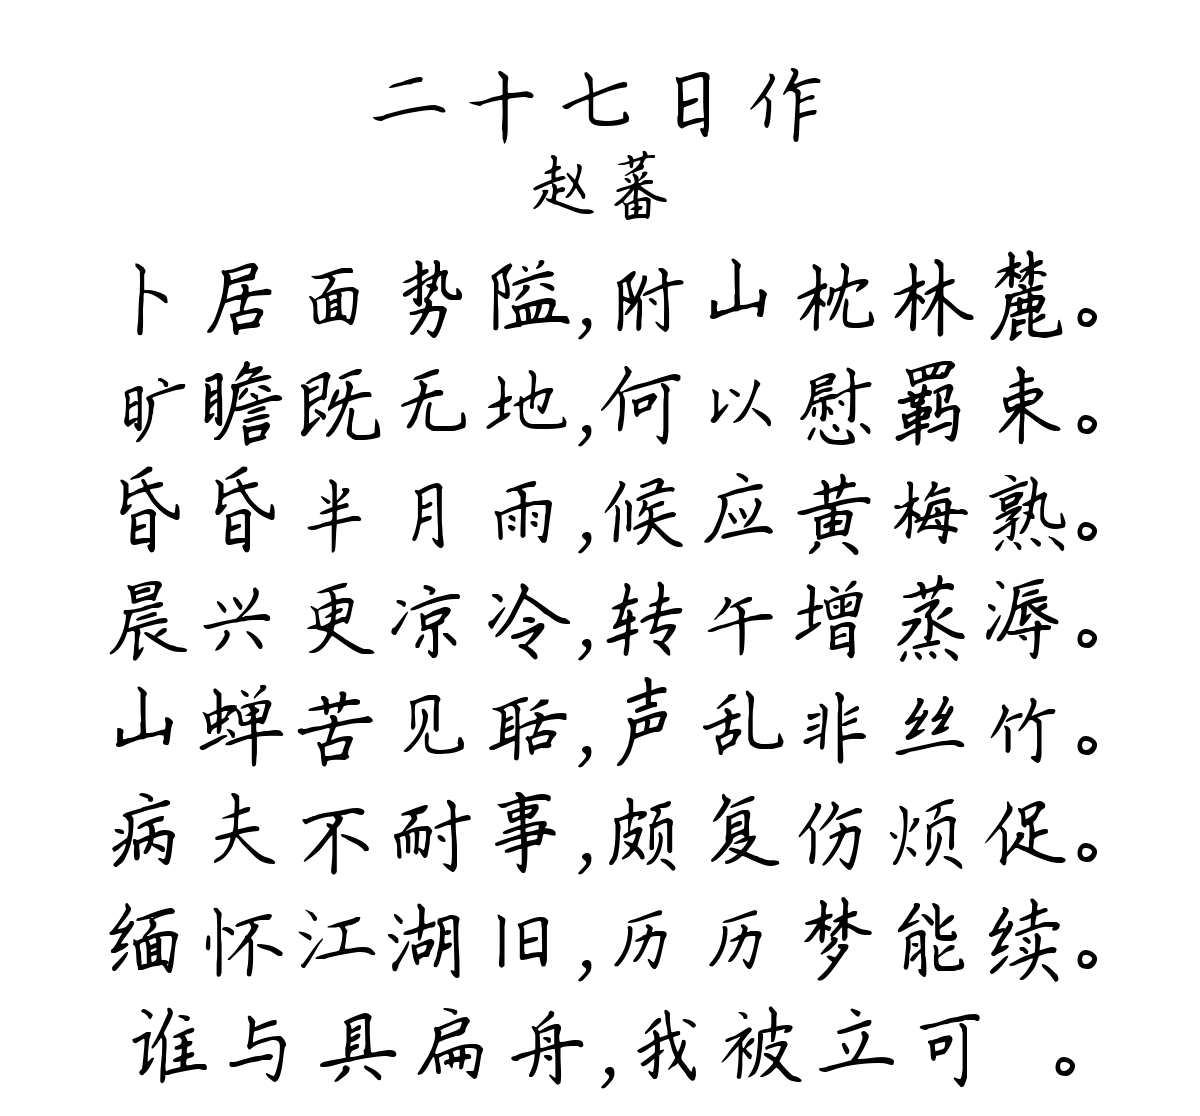 二十七日作
赵蕃
卜居面势隘,附山枕林麓。
旷瞻既无地,何以慰羁束。
昏昏半月雨,候应黄梅熟。
晨兴更凉冷,转午增蒸溽。
山蝉苦见聒,声乱非丝竹。
病夫不耐事,颇复伤烦促。
缅怀江湖旧,历历梦能续。
谁与具扁舟,我被立可 。